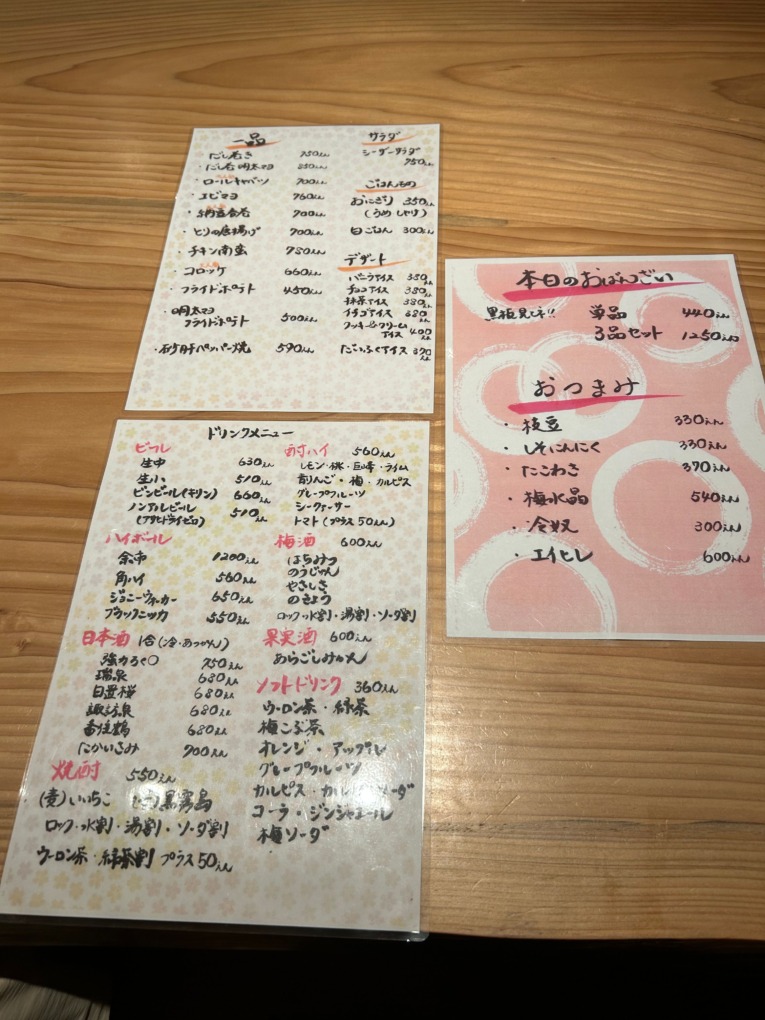 一品
だし巻き 750えん
・だし巻明太マヨ 850えん
・ロールキャベツ 700えん
・エビマヨ 760えん
700えん
・とりの唐揚げ 700えん
・チキン南蛮 750えん
・コロッケ 660えん
・フライドポテト 450えん
・明太マヨ
フライドポテト 500えん
・砂肝ペッパー焼 590えん
サラダ
シーザーサラダ
750えん
ごはんもの
おにぎり 350えん
(うめ しゃけ)
白ごはん 300えん
デザート
バニラアイス 350えん
チョコアイス 380えん
抹茶アイス 380えん
イチゴアイス 380えん
クッキー&クリーム
アイス 400えん
だいふくアイス 390えん
本日のおばんざい
黒板見てネ!! 単品 440えん
3品セット 1250えん
おつまみ
・枝豆 330えん
・しそにんにく 330えん
・たこわさ 370えん
・梅水晶 540えん
・冷奴 300えん
・エイヒレ 600えん
ドリンクメニュー
ビール
生中 630えん
生小 510えん
ビンビール(キリン) 660えん
ノンアルビール
(アサヒドライゼロ) 510えん
ハイボール
余市 1200えん
角ハイ 560えん
ジョニーウォーカー 650えん
ブラックニッカ 550えん
日本酒 1合(冷・あつかん)
強力 750えん
瑞泉 680えん
日置桜 680えん
諏訪泉 680えん
千代鶴 680えん
にかいさみ 900えん
焼酎 550えん
(麦)いいちこ 黒霧島
ロック・水割・湯割・ソーダ割
ウーロン茶・緑茶割 プラス50えん
酎ハイ 560えん
レモン・桃・巨峰・ライム
青りんご・梅・カルピス
グレープフルーツ
シークァーサー
トマト(プラス50えん)
梅酒 600えん
はちみつ
のうじゅん
やさしさ
のきょう
ロック・水割・湯割・ソーダ割
果実酒 600えん
あらごしみかん
ソフトドリンク 360えん
ウーロン茶・緑茶
梅こぶ茶
オレンジ・アップル
グレープフルーツ
カルピス・カルピスソーダ
コーラ・ジンジャエール
梅ソーダ